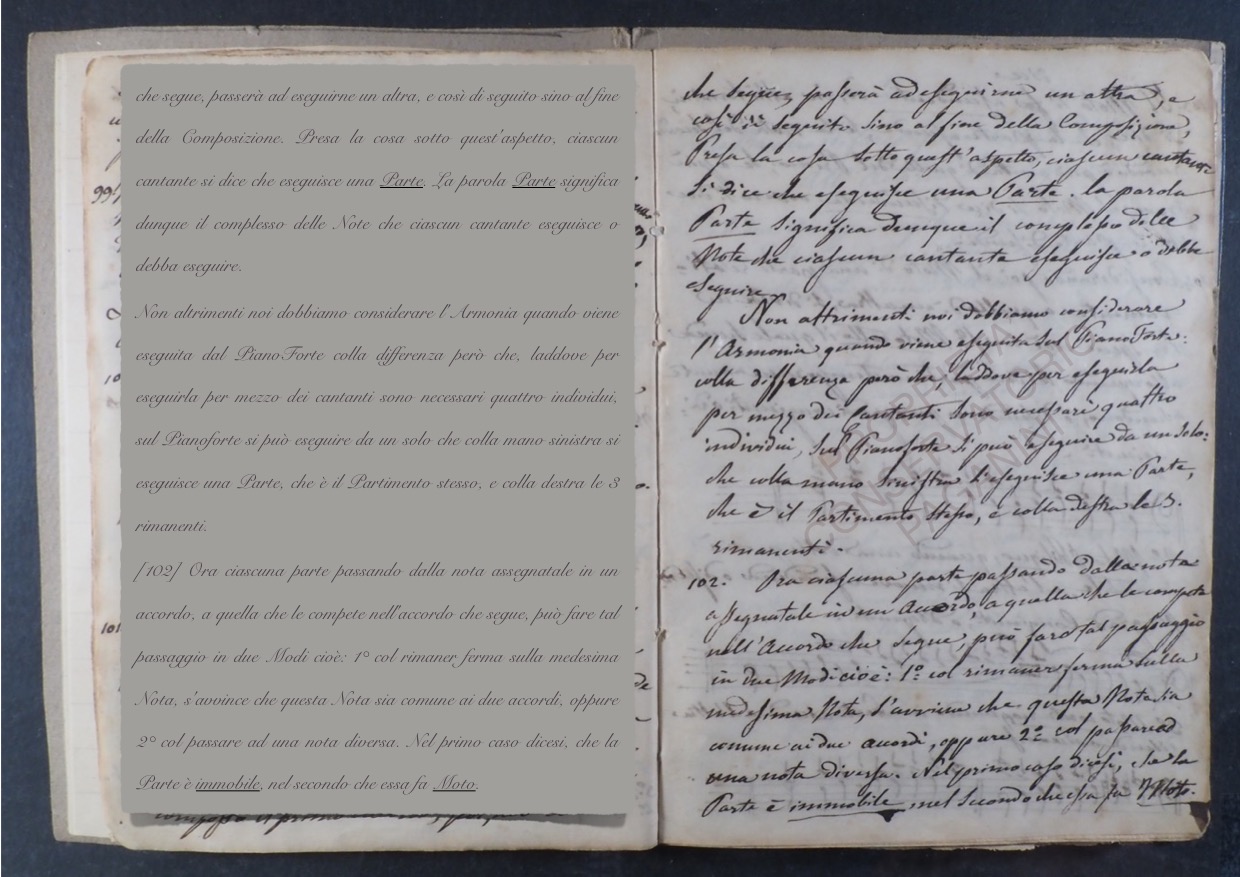 che segue, passerà ad eseguirne un altra, e così di seguito sino al fine
della Composizione. Presa la cosa sotto quest'aspetto, ciascun
cantante si dice che eseguisce una Parte. La parola Parte significa
dunque il complesso delle Note che ciascun cantante eseguisce o
debba eseguire.
Non altrimenti noi dobbiamo considerare l'Armonia quando viene
eseguita dal PianoForte colla differenza però che, laddove per
eseguirla per mezzo dei cantanti sono necessari quattro individui,
sul Pianoforte si può eseguire da un solo che colla mano sinistra si
eseguisce una Parte, che è il Partimento stesso, e colla destra le 3
rimanenti.
[102] Ora ciascuna parte passando dalla nota assegnatale in un
accordo, a quella che le compete nell'accordo che segue, può fare tal
passaggio in due Modi cioè: 1° col rimaner ferma sulla medesima
Nota, s'avvince che questa Nota sia comune ai due accordi, oppure
2° col passare ad una nota diversa. Nel primo caso dicesi, che la
Parte è immobile, nel secondo che essa fa Moto.
99
10
101
che segue, passerà ad eseguirne un altra, e
così di seguito sino al fine della Composizione,
Presa la cosa sotto quest'aspetto, ciascun cantante
si dice che eseguisce una Parte. la parola
Parte significa dunque il complesso delle
Note che ciascun cantante eseguisce o debba
eseguire.
Non altrimenti noi dobbiamo considerare
l'Armonia quando viene eseguita sul PianoForte:
colla differenza però che, laddove per eseguirla
per mezzo dei Cantanti sono necessari quattro
individui, sul Pianoforte si può eseguire da un solo:
che colla mano sinistra s'eseguisce una Parte,
che è il Partimento stesso, e colla destra le 3.
rimanenti.
102. Ora ciascuna parte passando dalla nota
assegnatale in un Accordo, a quella che le compete
nell'Accordo che segue, può fare tal passaggio
in due Modi cioè: 1° col rimaner ferma sulla
medesima Nota, s'avviene che questa Nota sia
comune ai due accordi, oppure 2° col passare ad
una nota diversa. Nel primo caso dicesi, che la
Parte è immobile, nel secondo che essa fa Moto.
CONSERVATORIO
PAGANINI